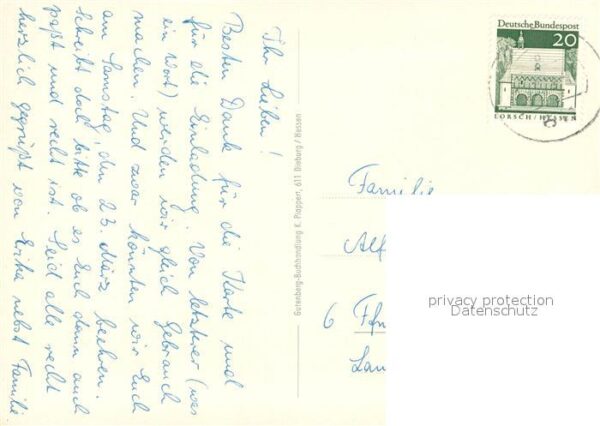 Ihr Lieben!
Besten Dank für die Karte und
für die Einladung. Von letzterer (was
ein Wort) werden wir gleich Gebrauch
machen. Und zwar könnten wir Euch
am Samstag, den 23. März beehren.
Schreibt doch bitte ob es Euch dann auch
paßt und recht ist. Seid alle recht
herzlich gegrüßt von Erika nebst Familie
Gutenberg-Buchhandlung K. Plappert, 611 Dieburg / Hessen
Deutsche Bundespost
20
LORSCH/HESSEN
Familie
Alf
6
Lan
privacy protection
Datenschutz